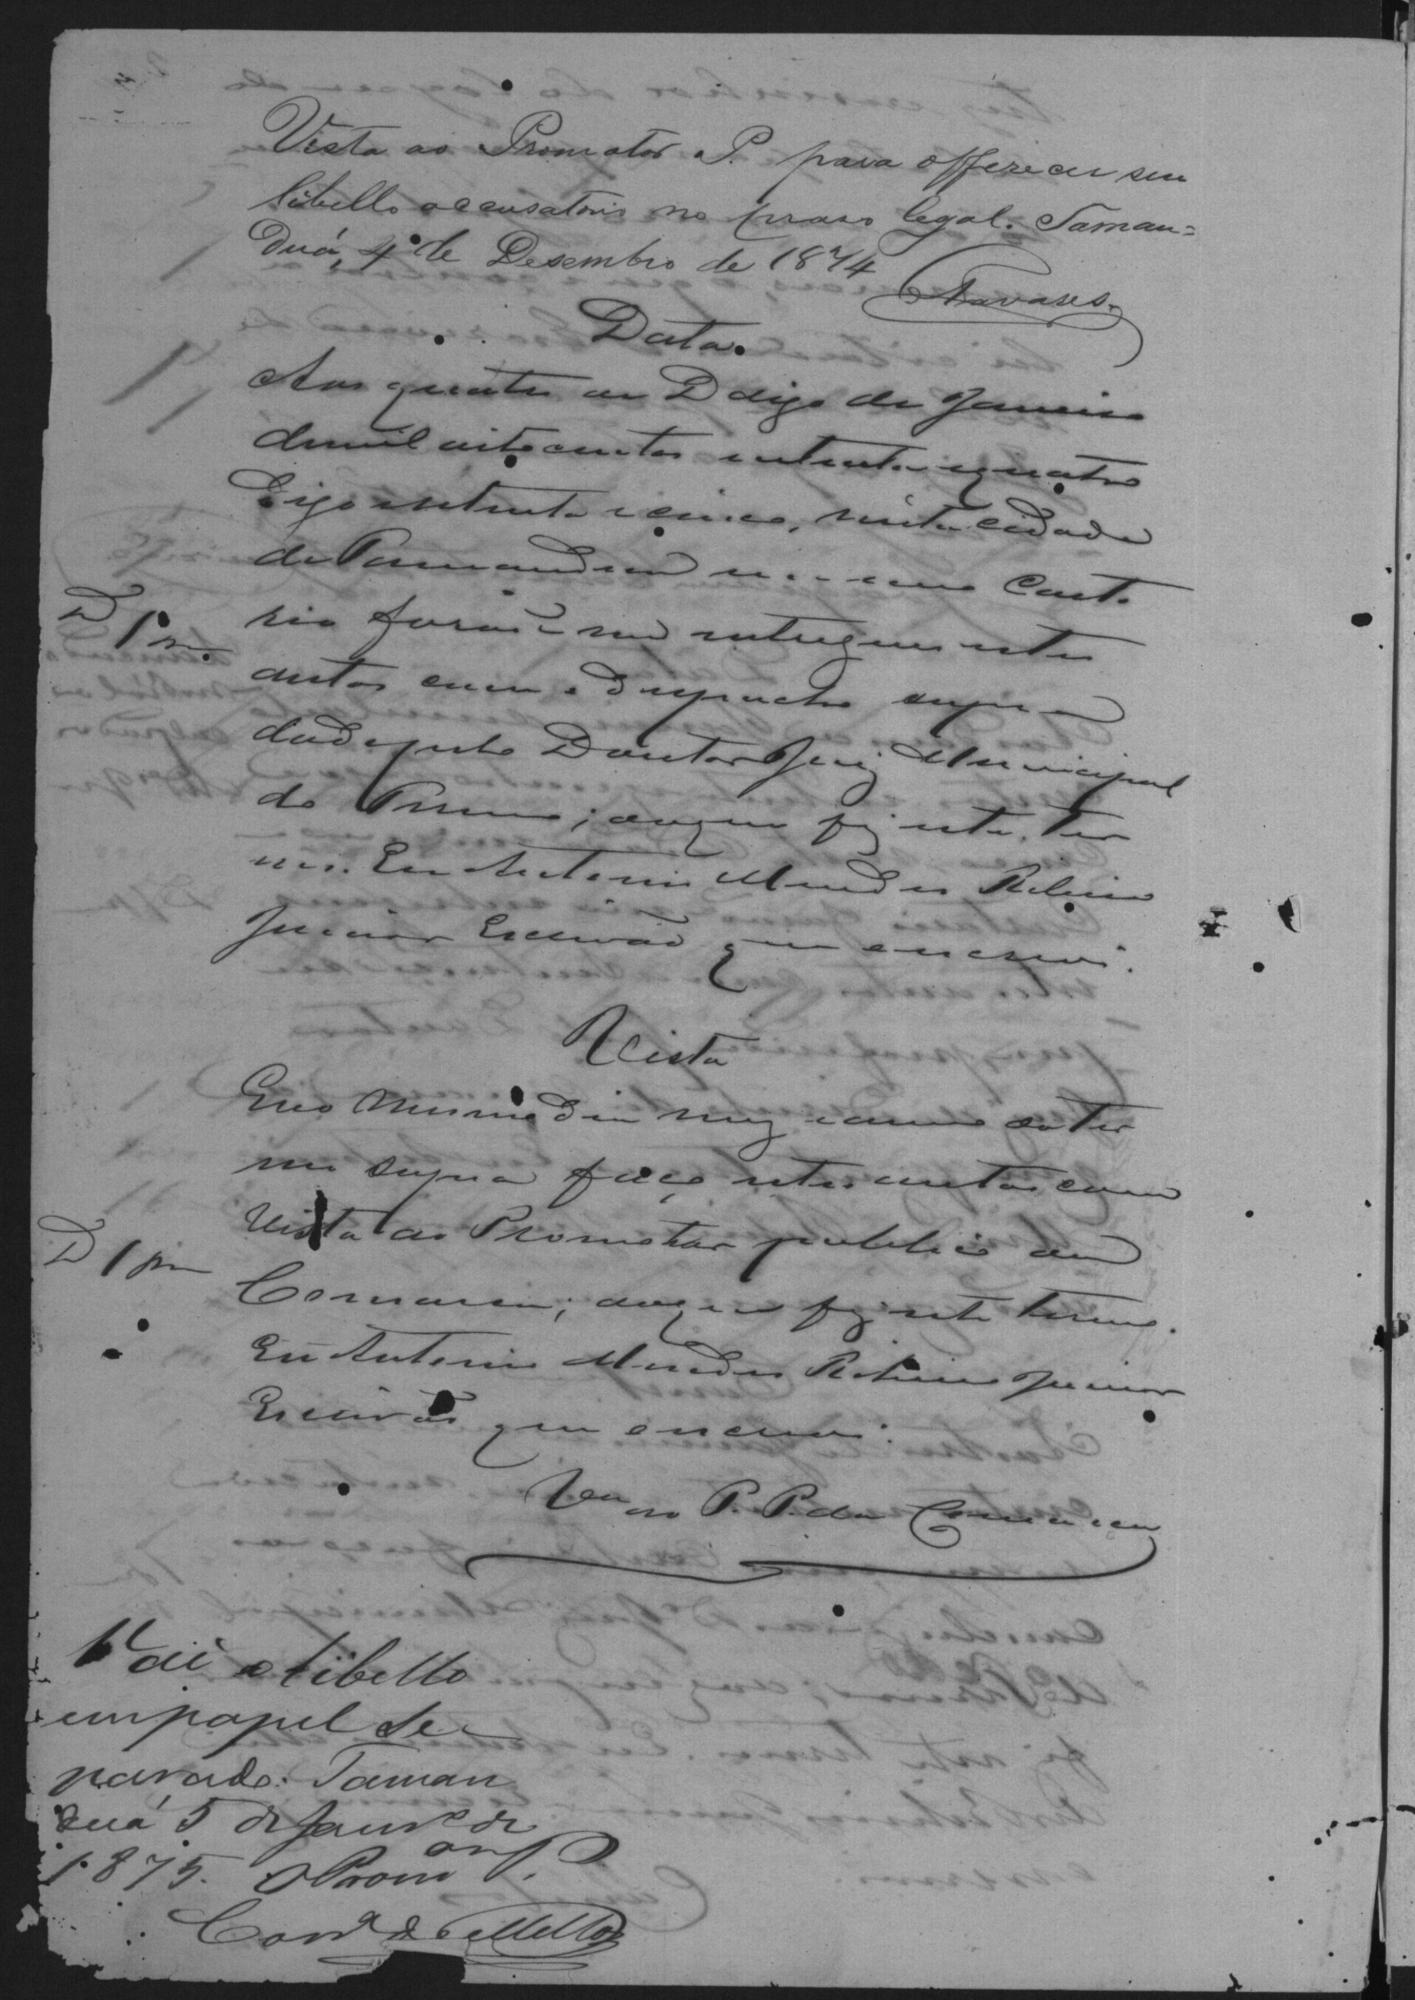 Vista ao Promotor P. para offerecer seu
libello accusatorio no praso legal. Taman=
duá, 4 de Desembro de 1874
Tavares.
Data.
Aos quatro de D digo de Janeiro
de mil oito centos e setenta e quatro
digo e setenta e cinco, nesta cidade
de Tamanduá em meu Carto
rio forão me entregues estes
autos com o despacho supra
dado pelo Doutor Juiz Municipal
do Termo; do que fiz este ter
mo. Eu Antonio Mendes Ribeiro
Junior Escrivão que escrevi.
D 1 pr.
Vista
E no mesmo dia mez e anno do ter
mo supra faço estes autos com
Vista ao Promotor publico da
Comarca; do que fiz este termo.
Eu Antonio Mendes Ribeiro Junior
Escrivão que escrevi.
D 1 pr
Vta ao P. P. da Comarca
Vai o libello
em papel se
parado. Taman
duá 5 de Janro de
1875. O Promor P.
de Mello